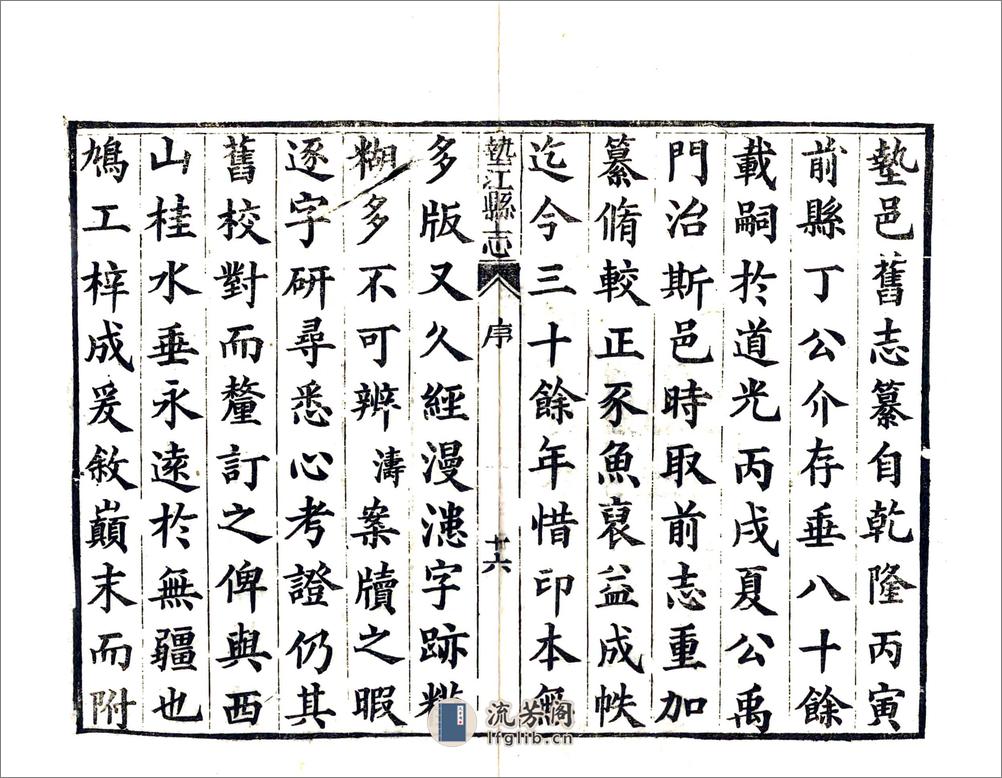 墊邑舊志纂自乾隆丙寅
前縣丁公介存垂八十餘
載嗣於道光丙戌夏公禹
門治斯邑時取前志重加
纂脩較正豕魚裒益成帙
迄今三十餘年惜印本無
墊江縣志 序 廿六
多版又久經漫漶字跡糢
糊多不可辨濤案牘之暇
逐字研尋悉心考證仍其
舊校對而釐訂之俾與西
山桂水垂永遠於無疆也
鳩工梓成爰敘巔末而附
流芳阁
lfglib.cn